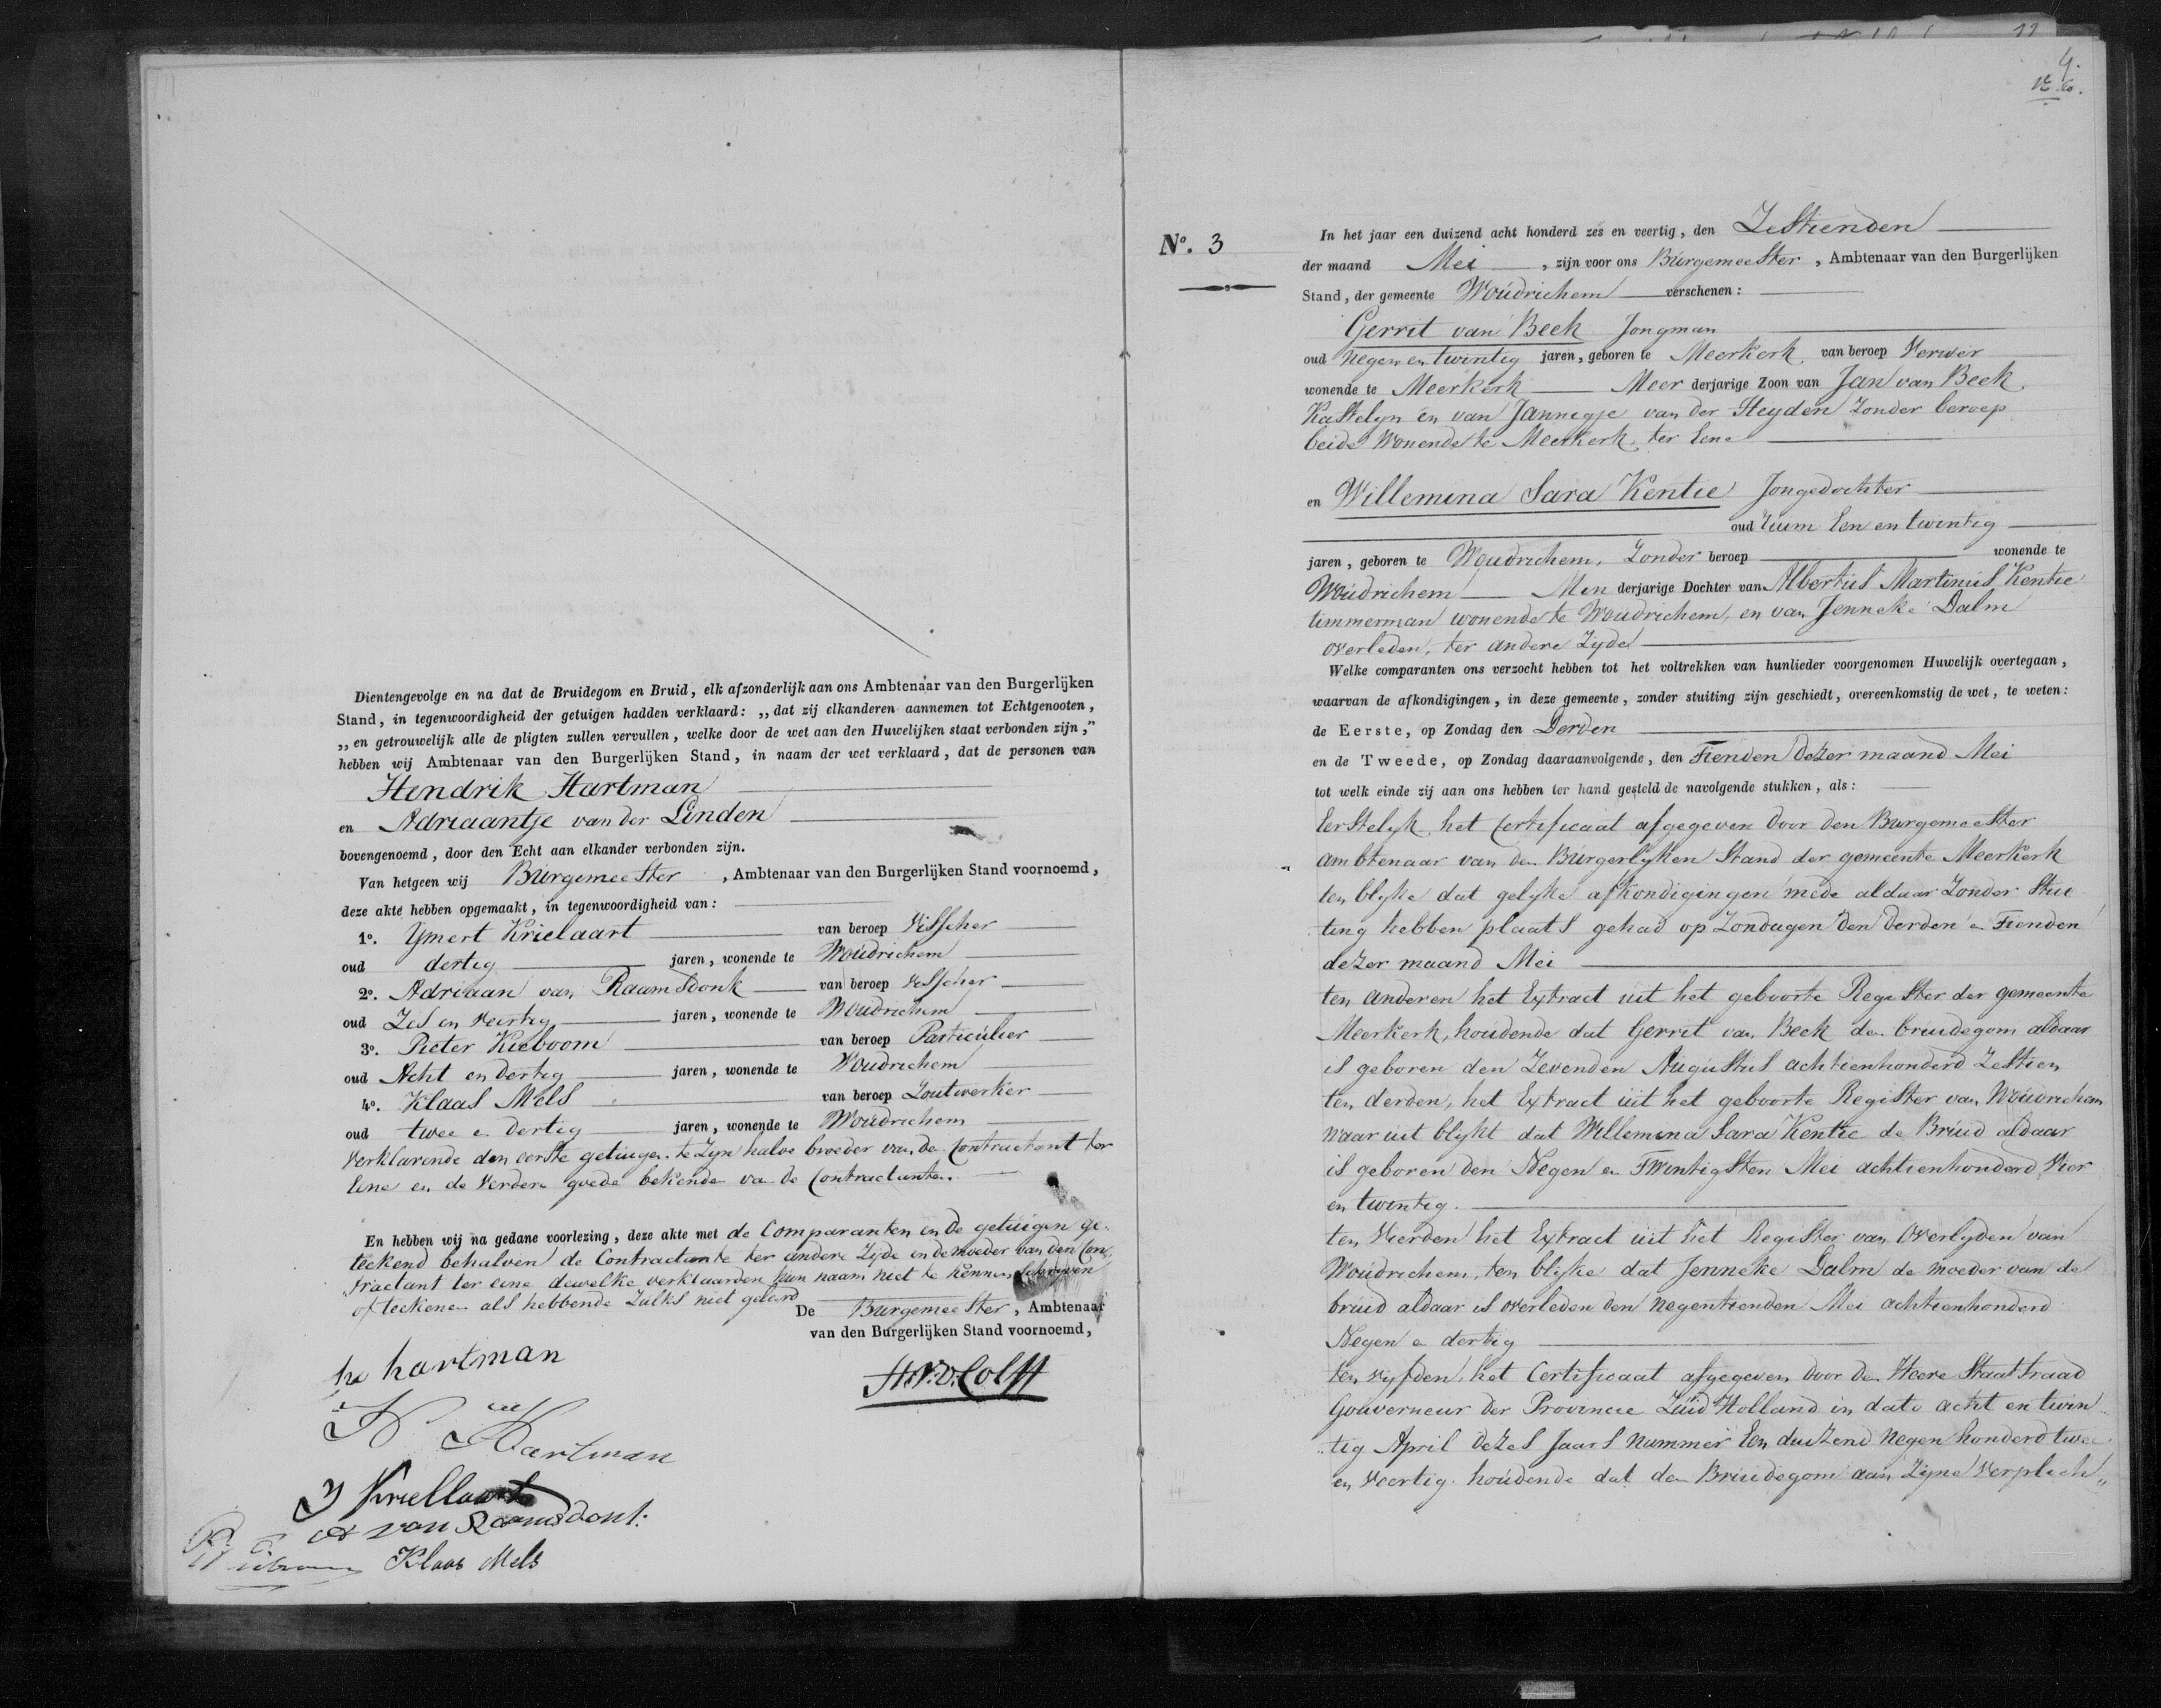 Dientengevolge en na dat de Bruidegom en Bruid, elk afzonderlijk aan ons Ambtenaar van den Burgerlijken
Stand, in tegenwoordigheid der getuigen hadden verklaard: „dat zij elkanderen aannemen tot Echtgenooten,
„en getrouwelijk alle de pligten zullen vervullen, welke door de wet aan den Huwelijken staat verbonden zijn,”
hebben wij Ambtenaar van den Burgerlijken Stand, in naam der wet verklaard, dat de personen van
Hendrik Hartman
en Adriaantje van der Linden
bovengenoemd, door den Echt aan elkander verbonden zijn.
Van hetgeen wij Burgemeester, Ambtenaar van den Burgerlijken Stand voornoemd,
deze akte hebben opgemaakt, in tegenwoordigheid van:
1o. Ymert Krielaart van beroep Visscher
oud dertig jaren, wonende te Woudrichem
2o. Adriaan van Raamsdonk van beroep Visscher
oud Zes en Veertig jaren, wonende te Woudrichem
3o. Pieter Kieboom van beroep Particulier
oud Acht en dertig jaren, wonende te Woudrichem
4o. Klaas Mels van beroep Zoutwerker
oud twee en dertig jaren, wonende te Woudrichem
Verklarende den eerste getuigen te zyn halve broeder van de Contractant ter
Eene en de verdere goede bekende van de Contractanten.
En hebben wij na gedane voorlezing, deze akte met de Comparanten en de getuigen ge-
teekend behalven de Contractante ter andere Zyde en de moeder van den Con-
tractant ter eene dewelke verklaarden hun naam niet te kennen schryven
of teekenen als hebbende Zulks niet geleerd
De Burgemeester, Ambtenaar
van den Burgerlijken Stand voornoemd,
h hartman
Hartman
Y Kriellaart
A van Raamsdonk
Klaas Mels
4.
No. 3
In het jaar een duizend acht honderd zes en veertig, den Zestienden
der maand Mei, zijn voor ons Burgemeester, Ambtenaar van den Burgerlijken
Stand, der gemeente Woudrichem verschenen:
Gerrit van Beek Jongman
oud negen en twintig jaren, geboren te Meerkerk, van beroep Verwer
wonende te Meerkerk Meer derjarige Zoon van Jan van Beek,
Kastelyn en van Jannigje van der Heyden Zonder beroep
beide Wonende te Meerkerk, ter Eene
en Willemina Sara Kentie Jongedochter
oud ruim Een en twintig
jaren, geboren te Woudrichem, Zonder beroep wonende te
Woudrichem Min derjarige Dochter van Albertus Martinus Kentie
timmerman wonende te Woudrichem, en van Jenneke Dalm
overleden, ter andere Zyde
Welke comparanten ons verzocht hebben tot het voltrekken van hunlieder voorgenomen Huwelijk overtegaan,
waarvan de afkondigingen, in deze gemeente, zonder stuiting zijn geschied, overeenkomstig de wet, te weten:
de Eerste, op Zondag den Derden
en de Tweede, op Zondag daaraanvolgende, den Tienden dezer maand Mei
tot welk einde zij aan ons hebben ter hand gesteld de navolgende stukken, als:
Eerstelyk, het Certificaat afgegeven door den Burgemeester
ambtenaar van den Burgerlyken Stand der gemeente Meerkerk
ten blyke dat gelyke afkondigingen mede aldaar Zonder Stui
ting hebben plaats gehad op Zondagen den derden en Tienden
dezer maand Mei
ten anderen het Extract uit het geboorte Register der gemeente
Meerkerk, houdende dat Gerrit van Beek de bruidegom aldaar
is geboren den Zevenden Augustus achtienhonderd Zestien
ten derden, het Extract uit het geboorte Register van Woudrichem
waar uit blykt dat Willemina Sara Kentie de Bruid aldaar
is geboren den Negen en Twintigsten Mei achtienhonderd Vier
en twintig.
ten Vierden het Extract uit het Register van Overlyden van
Woudrichem, ten blyke dat Jenneke Dalm de moeder van de
bruid aldaar is overleden den negentienden Mei achtienhonderd
Negen en dertig
ten vyfden, het Certificaat afgegeven door den Heere Staatsraad
Gouverneur der Provincie Zuid Holland in dato acht en twin
tig April dezes Jaars nummer Een duizend negen honderd twee
en veertig houdende dat de Bruidegom aan Zyne Verplich„